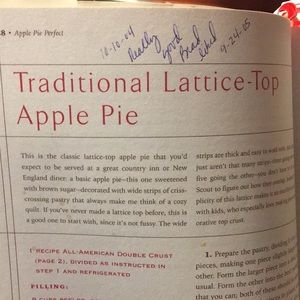 8 • Apple Pie Perfect
10-10-04
Really
good
Brad
liked
9-24-05
Traditional Lattice-Top
Apple Pie
This is the classic lattice-top apple pie that you'd
expect to be served at a great country inn or New
England diner: a basic apple pie—this one sweetened
with brown sugar—decorated with wide strips of criss-
crossing pastry that always make me think of a cozy
quilt. If you've never made a lattice top before, this is
a good one to start with, since it's not a fine, wove
strips are thick and easy to work with,
just aren't that many strips
five going the other—you don't have to
Scout to figure out how they
plicity of this lattice makes it an
with kids, who especially love making
orative top crust.
1 RECIPE ALL-AMERICAN DOUBLE CRUST
(PAGE 2), DIVIDED AS INSTRUCTED IN
STEP 1 AND REFRIGERATED
FILLING:
1. Prepare the pastry, dividing
pieces, making one piece slightly
other. Form the larger piece into a
other. Form the other into
that you can; both of these should